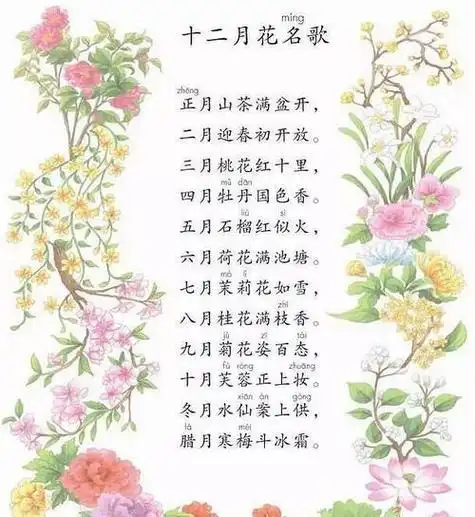 míng
十二月花名歌
zhēng
正月山茶满盆开，
二月迎春初开放。
三月桃花红十里，
mǔ dān
四月牡丹国色香。
liú sì
五月石榴红似火，
六月荷花满池塘。
mò lì
七月茉莉花如雪，
zhī
八月桂花满枝香。
jú zī tài
九月菊花姿百态，
fú róng zhuāng
十月芙蓉正上妆。
xiān àn gòng
冬月水仙案上供，
là méi
腊月寒梅斗冰霜。